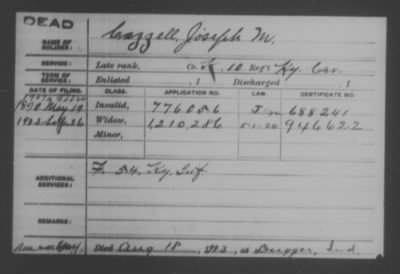 DEAD
NAME OF SOLDIER: Cazzell, Joseph M.
SERVICE: Late rank, Co. K, 10 Reg't Ky. Cav.
TERM OF SERVICE: Enlisted , 1 Discharged , 1
DATE OF FILING. CLASS. APPLICATION NO. LAW. CERTIFICATE NO.
1890 May 19 Invalid, 776056 688241
1923 Sep 26 Widow, 1,210,286 5-1-20 946622
Minor,
ADDITIONAL SERVICES: F. 54. Ky. Inf
REMARKS:
Died Aug 18, 1923, at Dugger, Ind.